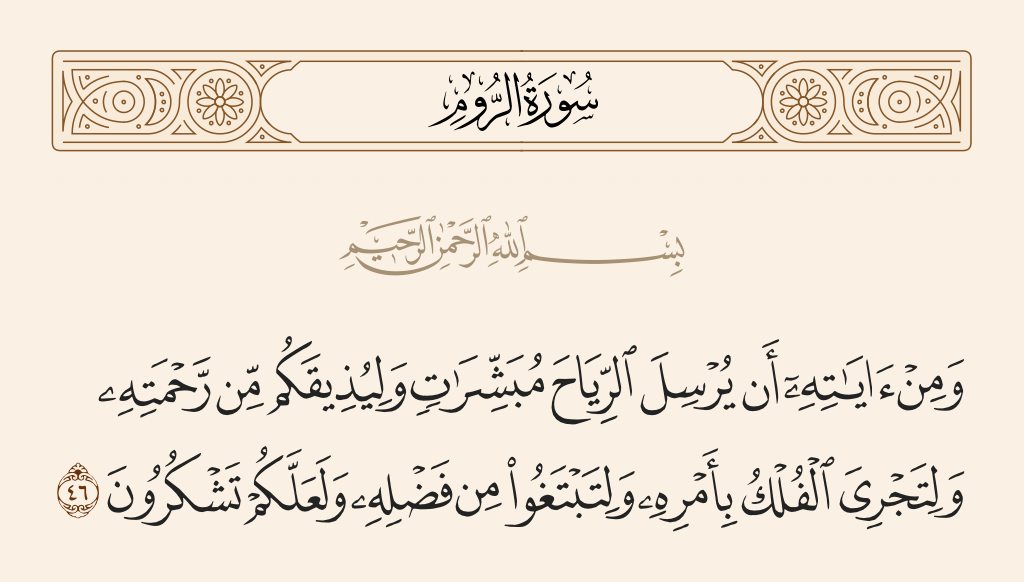 سُورَةُ الرُّومِ
بِسْمِ ٱللَّهِ ٱلرَّحْمَٰنِ ٱلرَّحِيمِ
وَمِنْ ءَايَـٰتِهِۦٓ أَن يُرْسِلَ ٱلرِّيَاحَ مُبَشِّرَٰتٍ وَلِيُذِيقَكُم مِّن رَّحْمَتِهِۦ
وَلِتَجْرِىَ ٱلْفُلْكُ بِأَمْرِهِۦ وَلِتَبْتَغُوا۟ مِن فَضْلِهِۦ وَلَعَلَّكُمْ تَشْكُرُونَ ٤٦